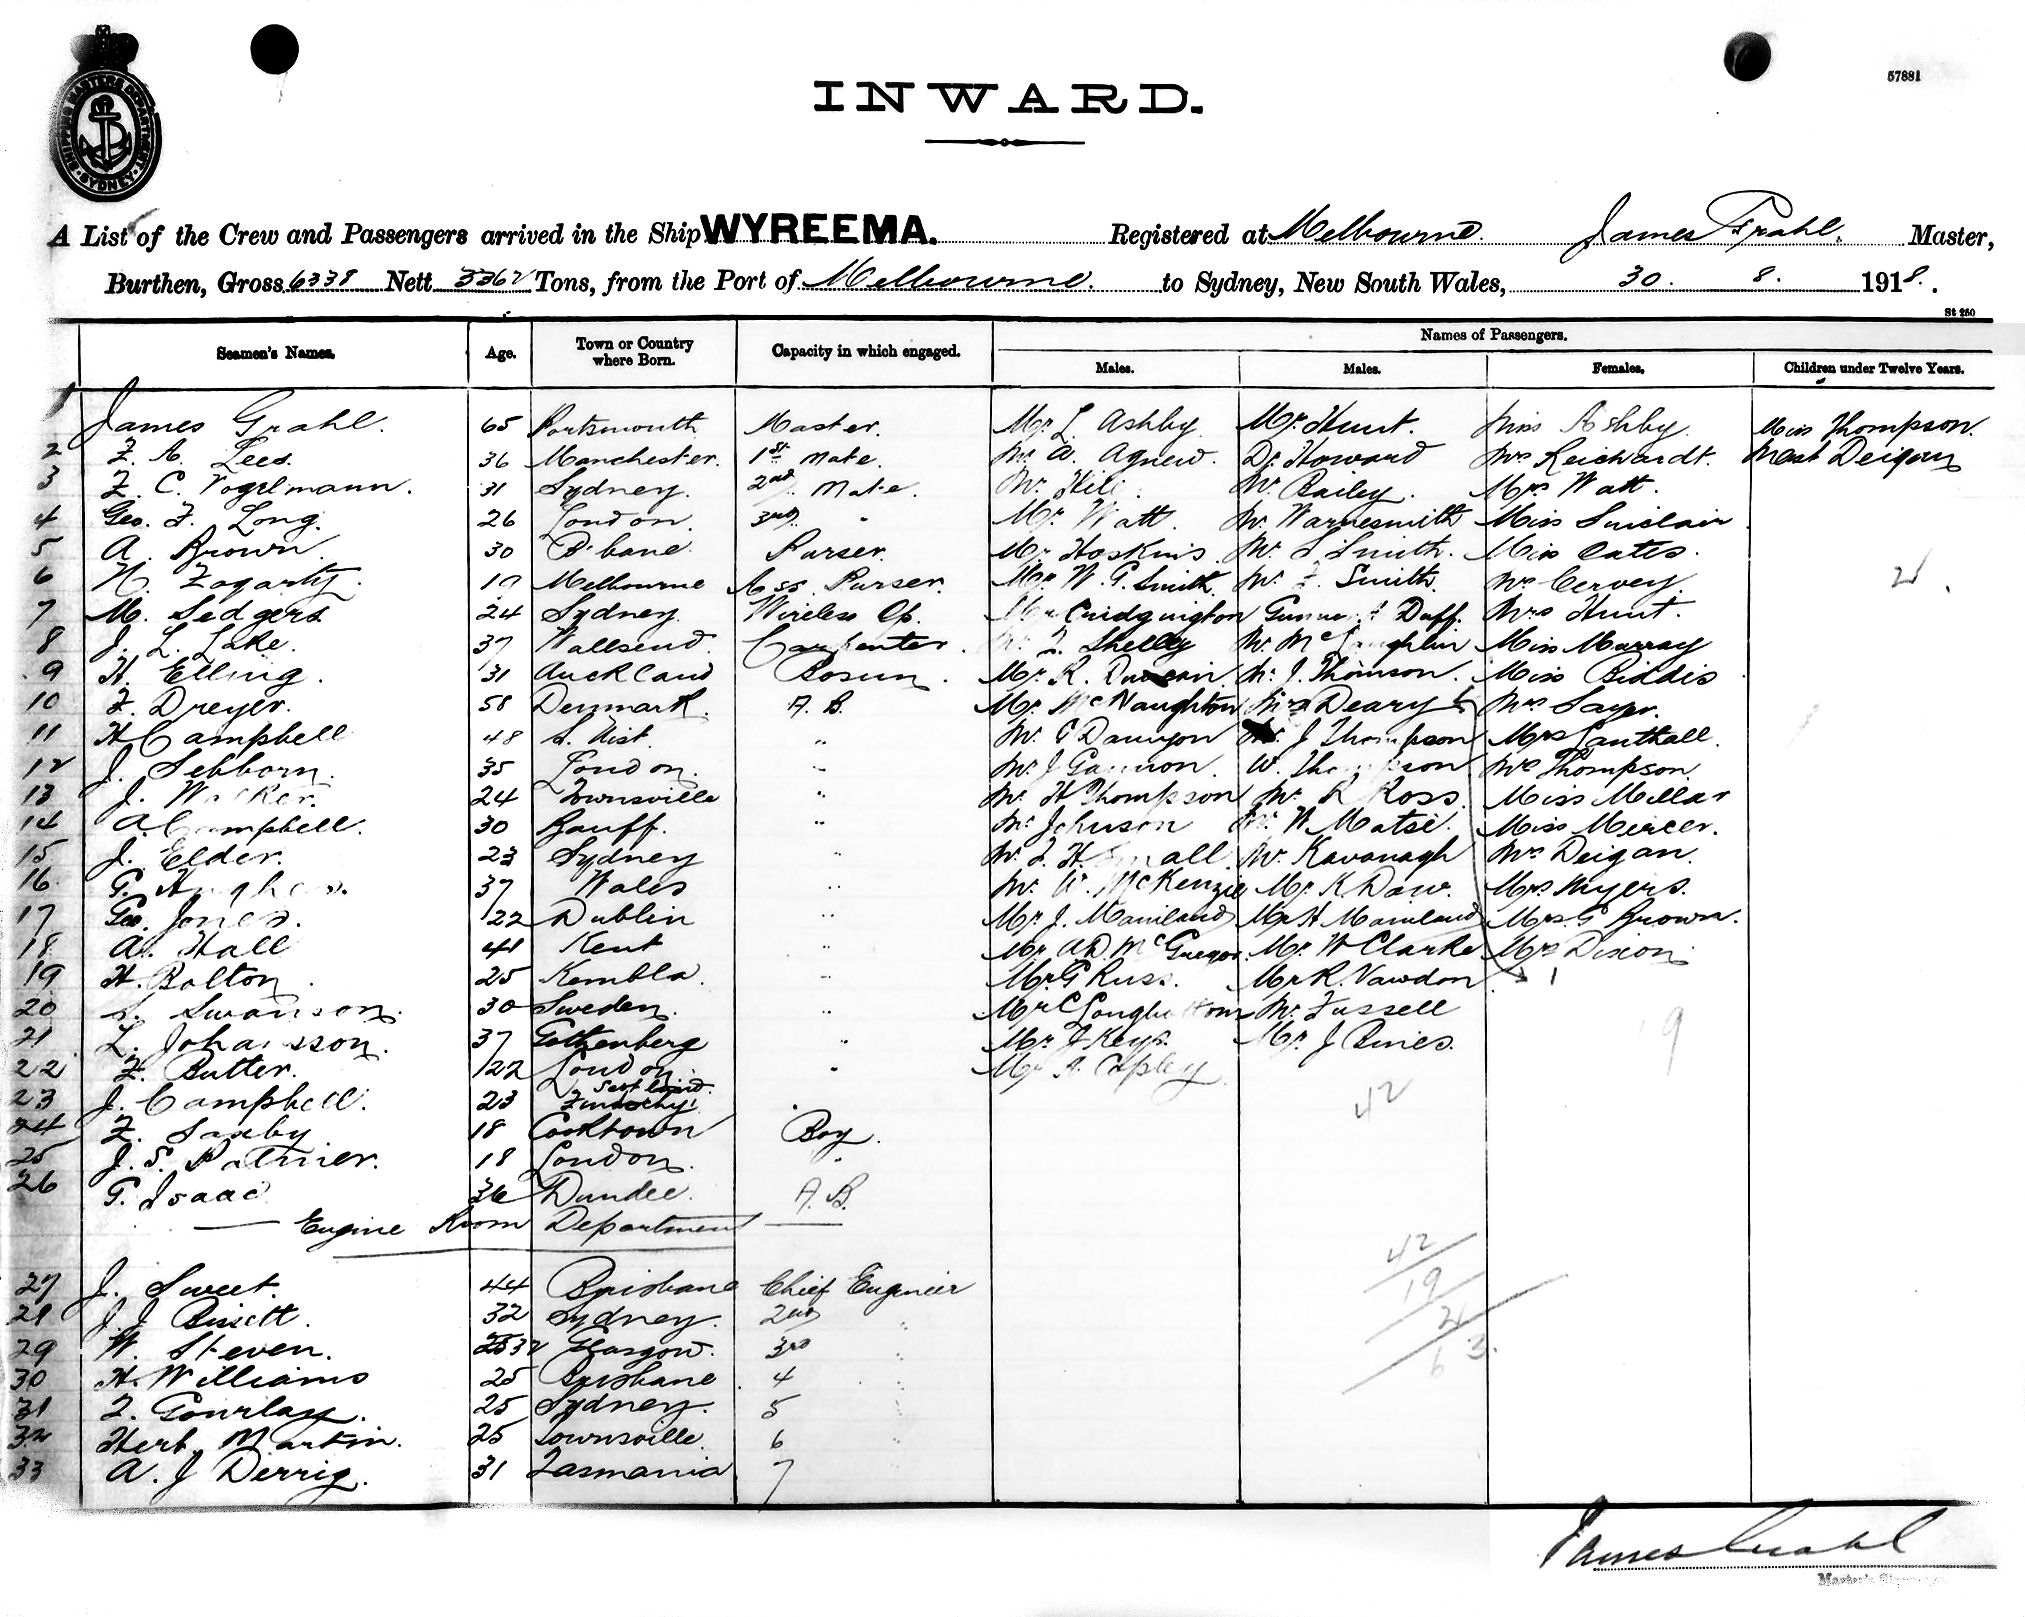 SHIPPING MASTERS DEPARTMENT SYDNEY
57881
INWARD.
A List of the Crew and Passengers arrived in the Ship WYREEMA. Registered at Melbourne. James Grahl. Master,
Burthen, Gross 6338 Nett 3362 Tons, from the Port of Melbourne. to Sydney, New South Wales, 30. 8. 1918.
St 250
Seamen's Names. Age. Town or Country where Born. Capacity in which engaged. Names of Passengers.
Males. Males. Females. Children under Twelve Years.
1 James Grahl. 65 Portsmouth Master. Mr. L. Ashby. Mr. Hunt. Miss Ashby. Miss Thompson.
2 F. A. Lees. 36 Manchester. 1st Mate. Mr A. Agnew. Dr. Howard Mrs Reichardt. Mast Deigan
3 F. C. Vogelmann. 31 Sydney. 2nd Mate. Mr. Hill Mr. Bailey. Mrs Watt.
4 Geo. F. Long. 26 London. 3rd " Mr. Watt. Mr. Warnesmith Miss Sinclair
5 A. Brown. 30 B'bane. Purser. Mr Hoskins. Mr. S Smith. Miss Oates.
6 N. Fogarty. 19 Melbourne Ass. Purser. Mr. W. G. Smith. Mr. F. Smith. Mrs Cervey.
2.
7 M. Sedgers 24 Sydney. Wireless Op. Mr Cridgington Duff. Mrs Hunt.
8 J. L. Lake. 37 Wallsend. Carpenter. Shelley Mr. McLaughlin Miss Murray
9 H. Elling. 31 Auckland Bosun. Mr. R. Duncan. Mr. J. Thomson. Miss Biddis
10 F. Dreyer. 58 Denmark. A.B. Mr. McNaughton Deary Mrs Sayer.
11 H Campbell 48 S. Uist. " Mr. J Thompson Mrs Canthall.
12 J. Sebborn. 35 London. " Mr. J Gannon. W. Thompson Mrs Thompson.
13 J. Walker. 24 Townsville " Mr. H Thompson Mr. R Ross. Miss Millar
14 A. Campbell. 30 Banff. " Mr Johnson Mr. W Matse. Miss Mercer.
15 J. Elder. 23 Sydney " Mr. Small Mr. Kavanagh Mrs Deigan.
16 G. Hughes. 37 Wales " Mr. W. McKenzie Mr. K Daw. Mrs Myers.
17 Geo. Jones. 22 Dublin " Mr. J. Mainland Mr H Mainland Mrs. G Brown.
18 A. Hall 41 Kent " Mr. A.D. McGregor. Mr. W Clarke Mrs Dixon
19 H. Bolton. 25 Kembla. Mr. G Russ. Mr R. Vawdon 1
20 S. Swanson. 30 Sweden. " Mr C Longbottom Mr. Fussell
21 L. Johansson. 37 Gothenberg " Mr. J. Keys. Mr. J Bines.
19
22 F. Butter. 22 London. " Mr A. Copley
42
23 J. Campbell. 23
24 F. Saxby. 18 Cooktown Boy.
25 J. S. Palmer. 18 London. "
26 G. Isaac 36 Dundee. A.B.
Engine Room Department
42
19
2
63.
27 J. Sweet. 44 Brisbane Chief Engineer
28 J. J Bissett. 32 Sydney. 2nd "
29 W. Steven. 32 Glasgow. 3rd "
30 H. Williams 25 Brisbane 4 "
31 Gourlay. 25 Sydney. 5
32 Herb. Martin. 25 Townsville. 6
33 A. J Derrig. 31 Tasmania 7
James Grahl
Master's Signature